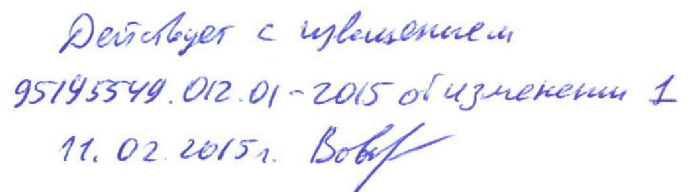 Действует с извещением
95195549.012.01-2015 об изменении 1
11.02.2015г.